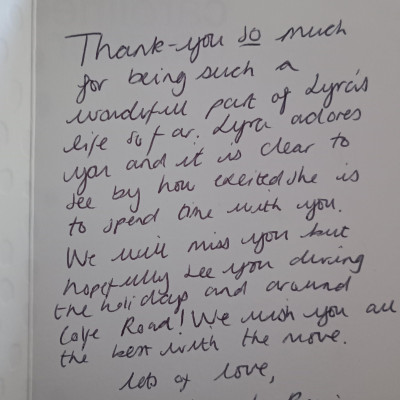 Thank-you so much
for being such a
wonderful part of Lyra's
life so far. Lyra adores
you and it is clear to
see by how excited she is
to spend time with you.
We will miss you but
hopefully see you during
the holidays and around
Road! We wish you all
the best with the move.
lots of love,